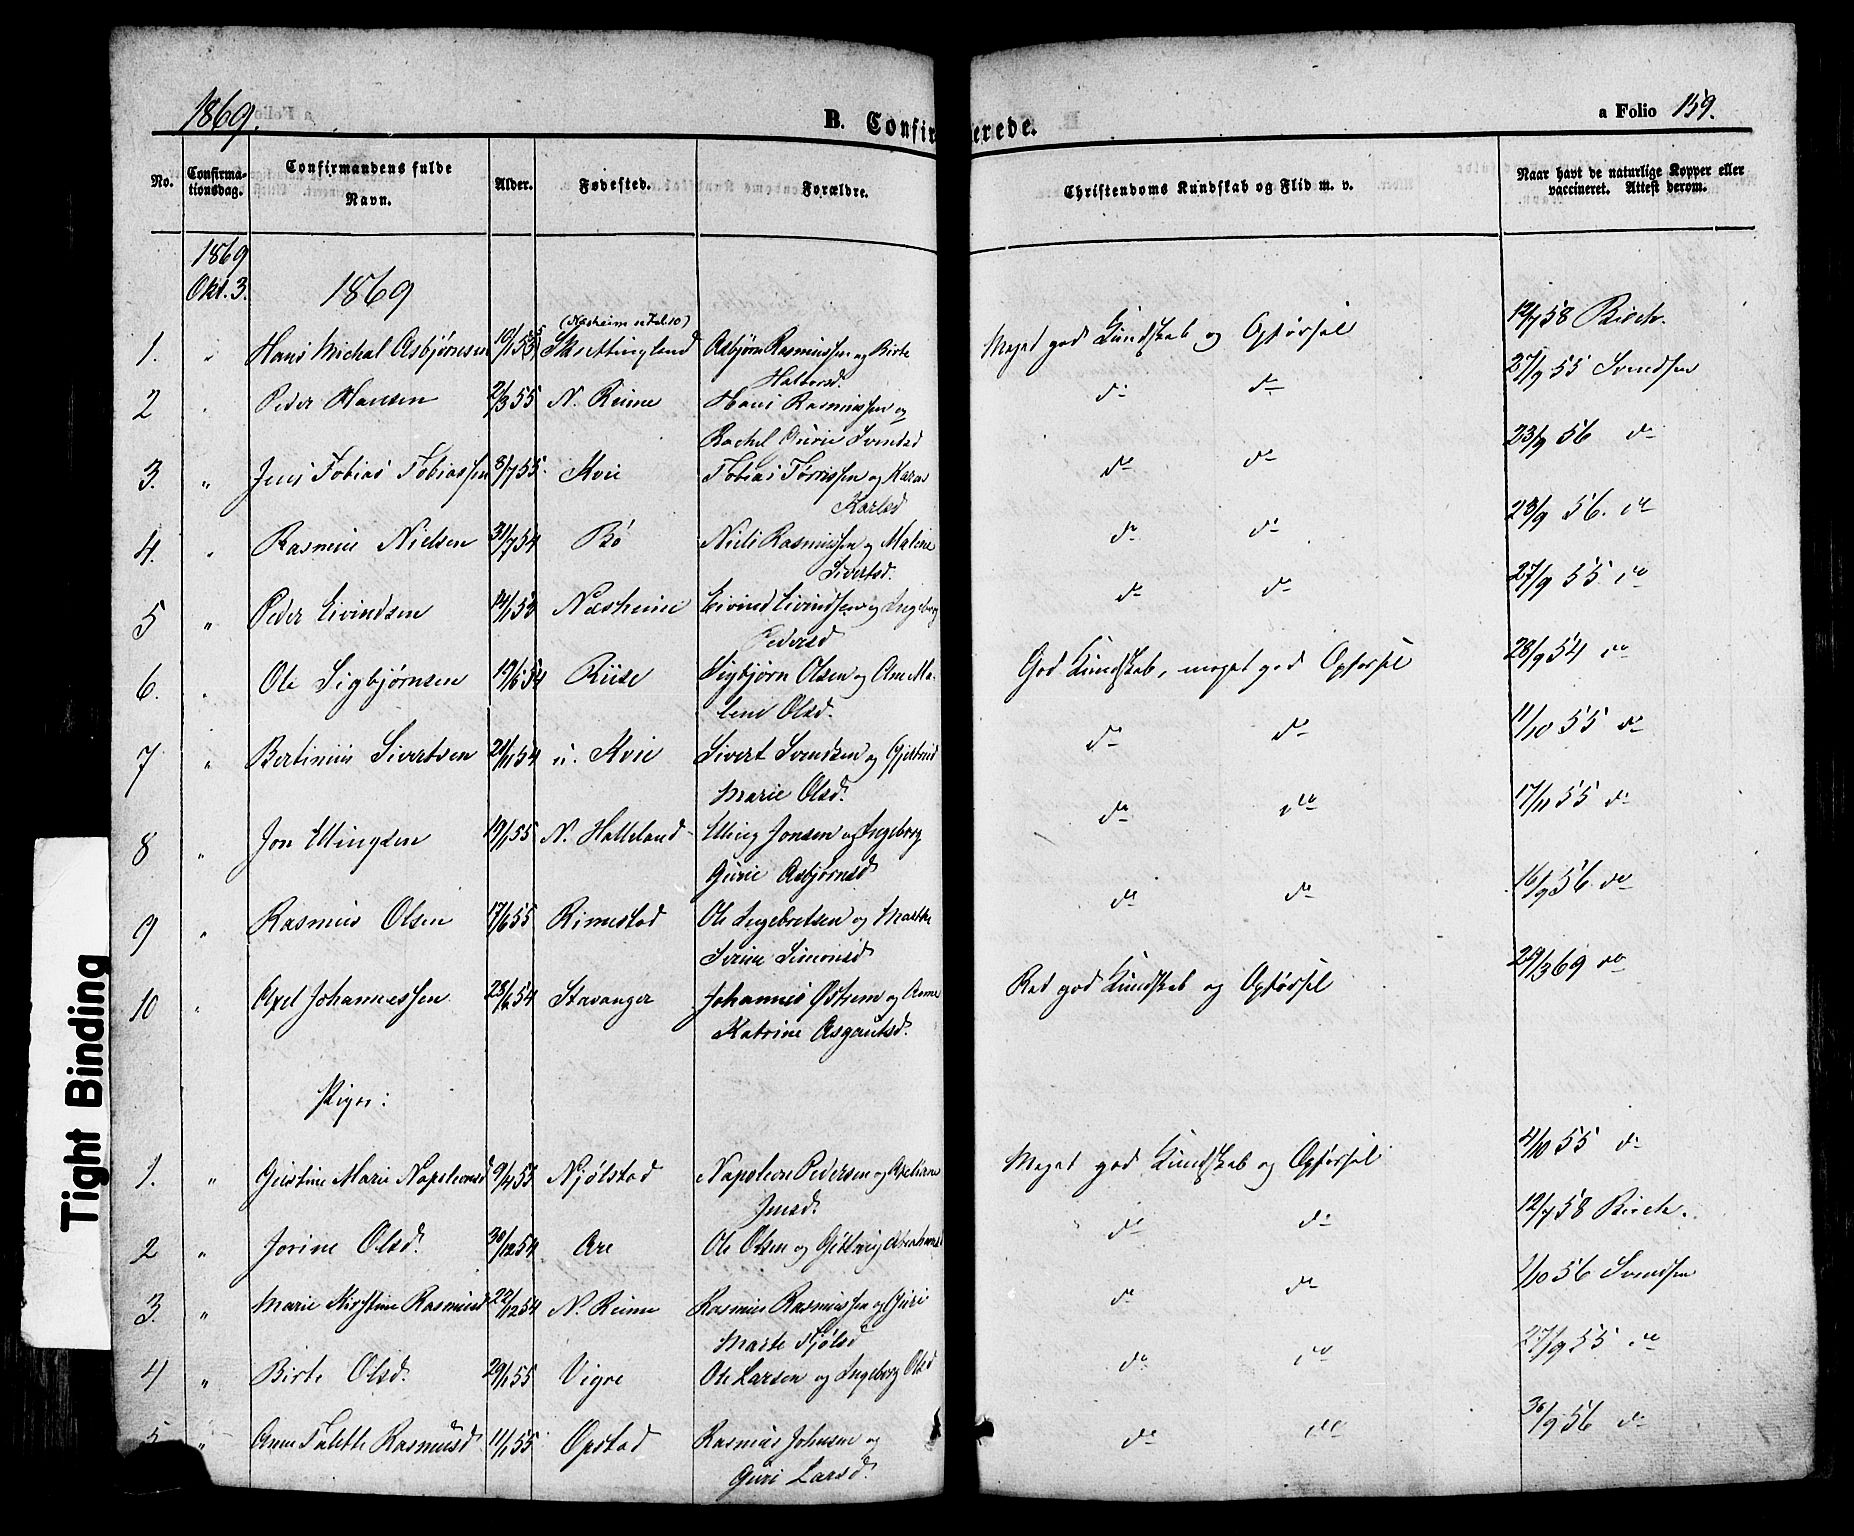 1869.
B. Confirmerede.
a Folio 159.
No. Confirmationsdag. Confirmandens fulde Navn. Alder. Fødested. Forældre. Christendoms Kundskab og Flid m. v. Naar havt de naturlige Kopper eller vaccineret. Attest derom.
1869
Okt. 3. 1869
1. " Hans Michal Asbjørnsen 10/1 55 Skrettingland Asbjørn Rasmussen og Birte Meget god Kundskab og Opførsel 12/7 58 Birch.
2 " Peder Hansen 2/3 55 N. Reime Hans Rasmussen og do do 27/9 55 Svendsen
Rachel Gurie Svendsd
3. " Jens Tobias Tobiassen 8/7 55 Kvie Tobias Tørrissen og Karen do do 23/9 56 do
Karlsd
4. " Rasmus Nielsen 31/7 54 Bø Niels Rasmussen og Malene do do 23/9 56. do
Sivertsd.
5 " Peder Eivindsen Næsheim Eivind Eivindsen og Ingeborg do do 27/9 55 do
Pedersd
6. " Ole Sigbjørnsen Riise Sigbjørn Olsen og Ane Ma- God Kundskab, meget god Opførsel 28/9 54 do
lene Olsd.
7 " Bertinius Sivertsen 21/11 54 u. Kvie Sivert Svendsen og Gjertrud do do 11/10 55 do
Marie Olsd.
8 " Jon Ellingsen 19/1 55 N. Halleland Elling Jonsen og Ingeborg do do 17/11 55 do
Gurie Asbjørnsd
9 " Rasmus Olsen 17/6 55 Rimestad Ole Ingebretsen og Marthe do do 16/9 56 do
Serine Simonsd
10 " Axel Johannessen 25/6 54 Stavanger Johannes Østrem og Anne Ret god Kundskab og Opførsel 29/3 69 do
Katrine Asgautsd.
Piger:
1. " Marie Napoleonsd 9/4 55 Njølstad Napoleon Pedersen og Meget god Kundskab og Opførsel 4/10 55 do
Jensd.
2 " Jorine Olsd. 30/12 54 Are Ole Olsen og do do 12/7 58 Birch.
3. " Marie Kirstine Rasmusd 22/12 54 N. Reime Rasmus Rasmussen og Guri do do 1/10 56 Svendsen
Marte Kjølsd
4 " Birte Olsd. 29/1 55 Vigre Ole Larsen og Ingeborg Olsd do do 27/9 55 do
5 " Anne Talette Rasmusd 11/1 55 Opstad Rasmus Johnsen og do do 30/9 56 do
Guri Larsd.
Tight Binding